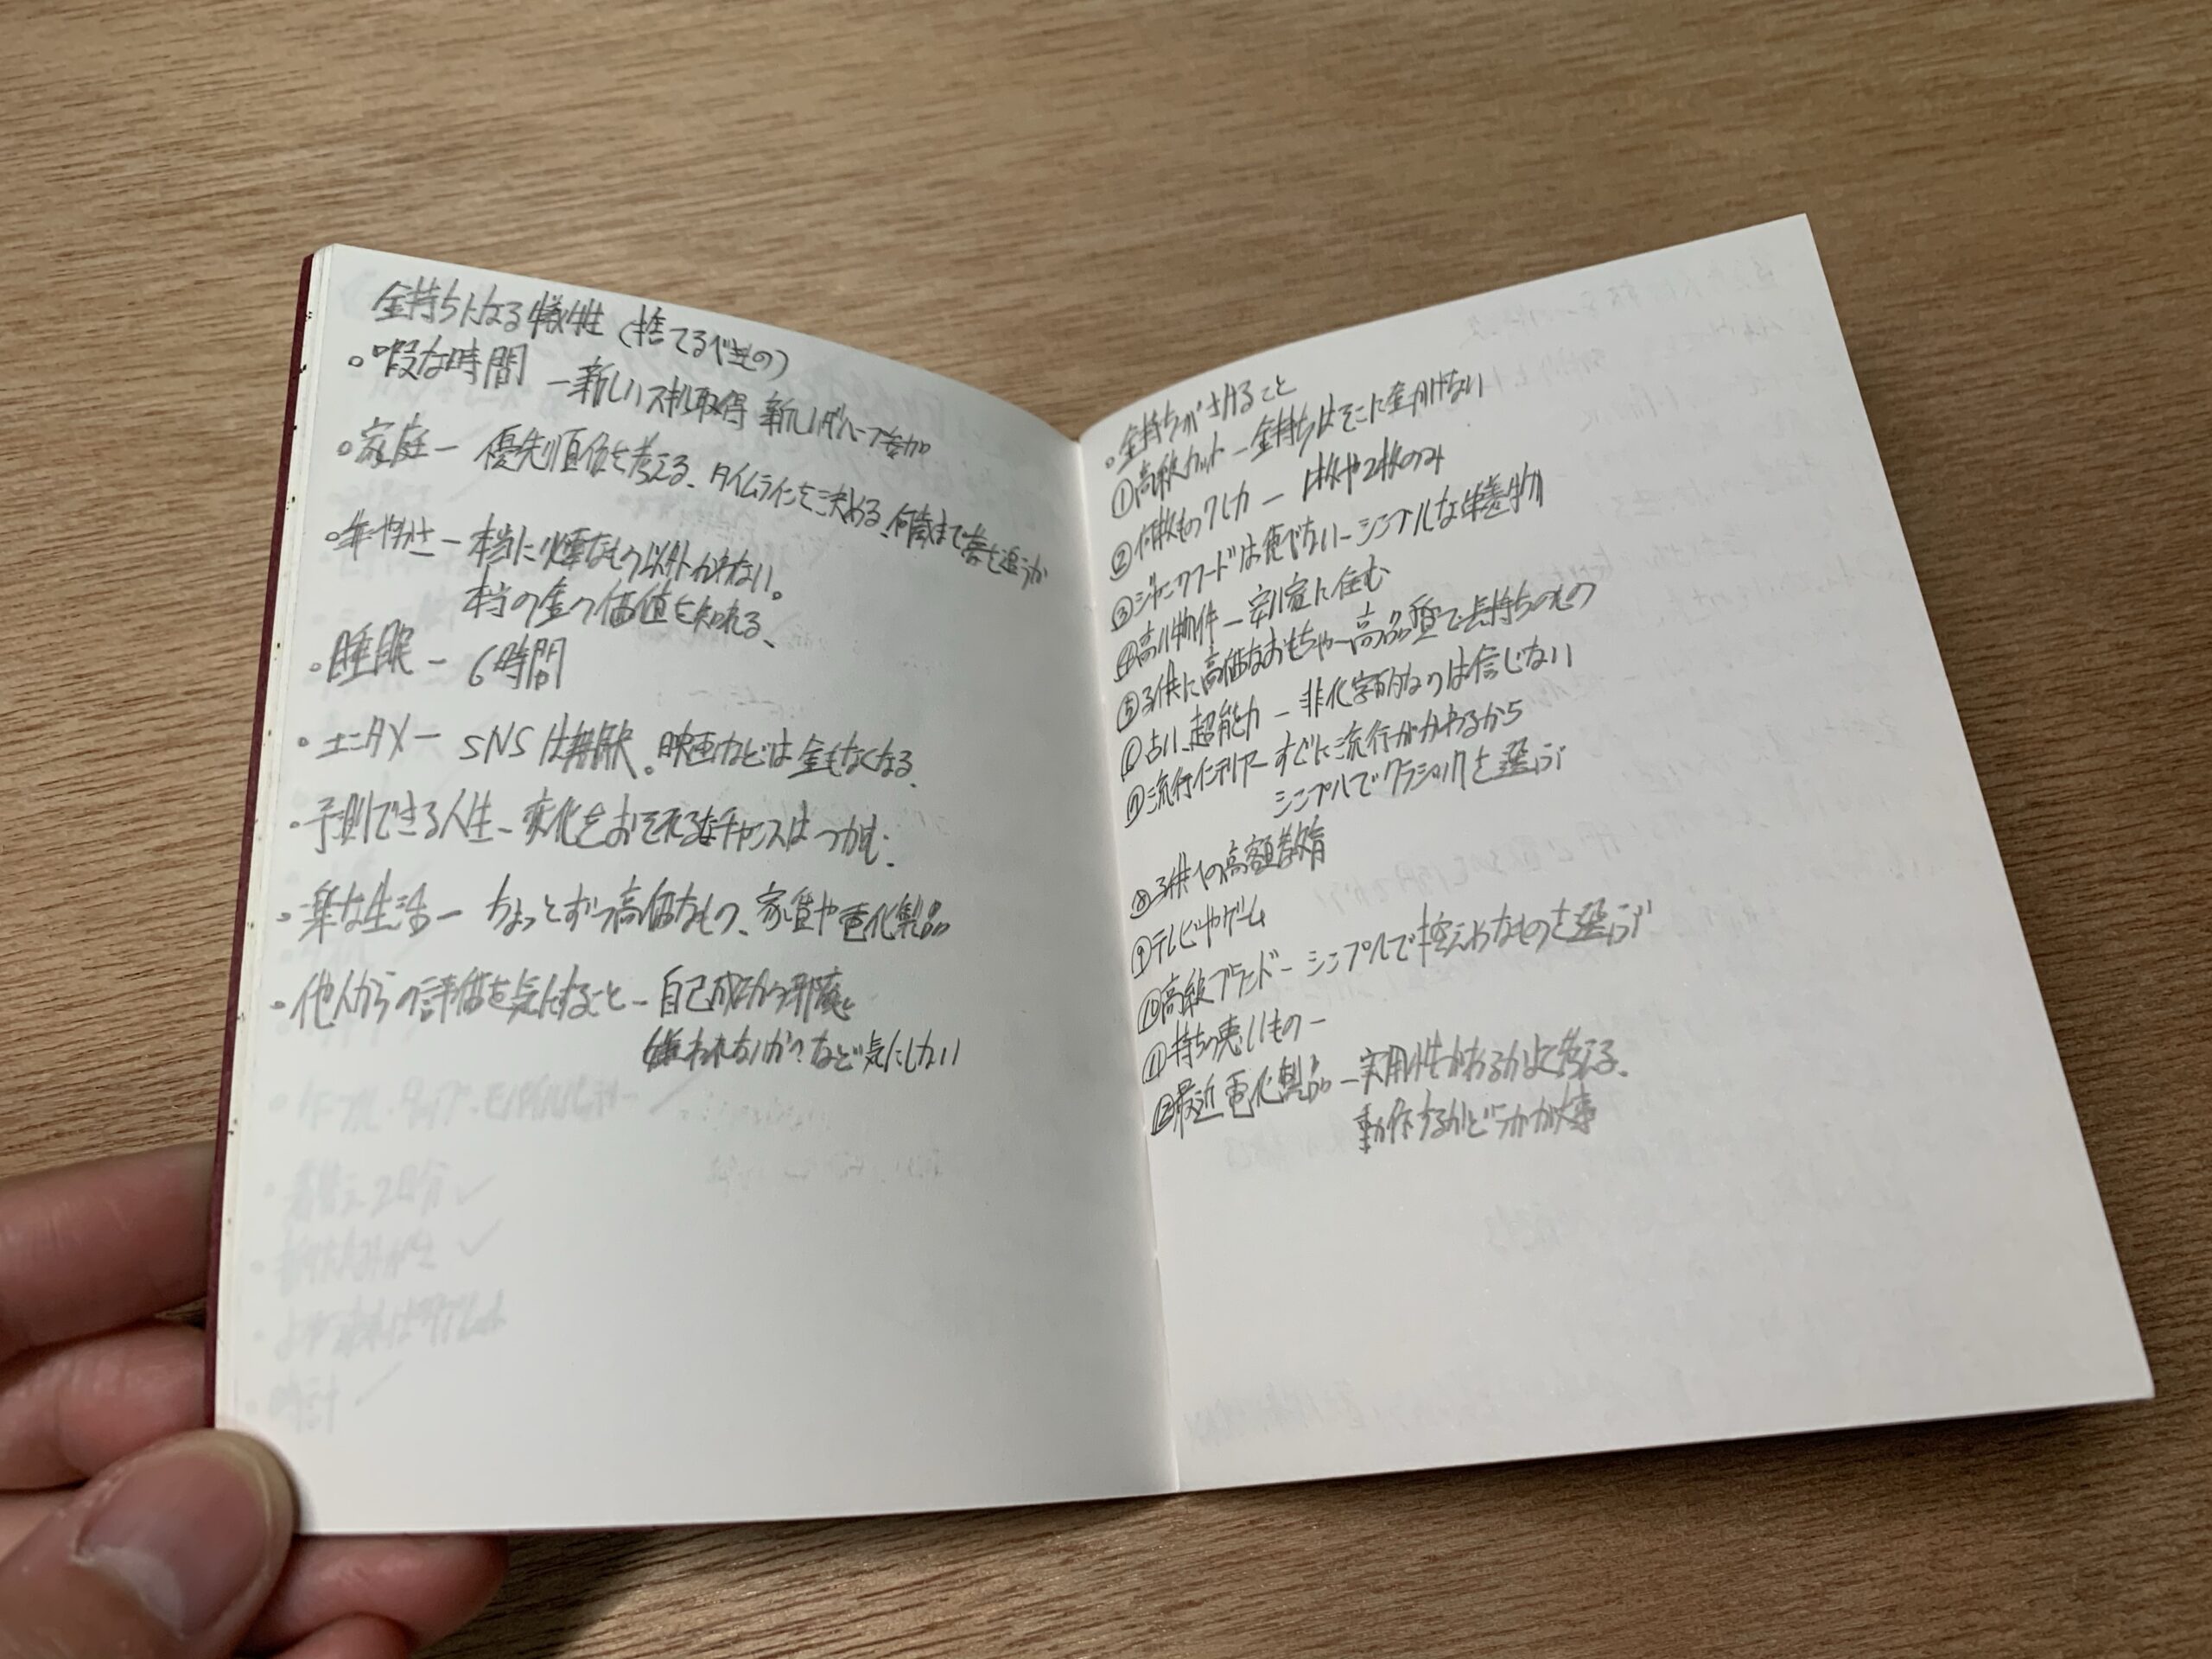 金持ちになる犠牲 (捨てるべきもの)
・暇な時間 ー新しいスキル取得 新しいグループ参加
・家庭ー 優先順位を考える、タイムラインを決める、何歳まで夢を追うか
ー本当に必要なもの以外かわない。
本当の金の価値を知れる、
・睡眠ー 6時間
・エンタメー SNSは無限。映画などは金もなくなる、
・予測できる人生ー変化をおそれるなチャンスはつかむ、
・楽な生活ー ちょっとずつ高価なもの、家賃や電化製品
・他人からの評価を気にすることー自己成功の邪魔
嫌われないか?など気にしない
・金持ちがさけること
①高級カットー金持ちはそこに金かけない
②何枚ものクレカー 1枚や2枚のみ
③ジャンクフードは食べないーシンプルな栄養物
④高い物件ー安い家に住む
⑤子供に高価なおもちゃー高品質で長持ちのもの
⑥占い、超能力ー非化学的なのは信じない
⑦流行インテリアーすぐに流行がかわるから
シンプルでクラシックを選ぶ
⑧子供への高額教育
⑨テレビやゲーム
⑩高級ブランドーシンプルで控えめなものを選ぶ
⑪持ちの悪いものー
⑫最近電化製品ー実用性があるかよく考える、
動作するかどうかが大事